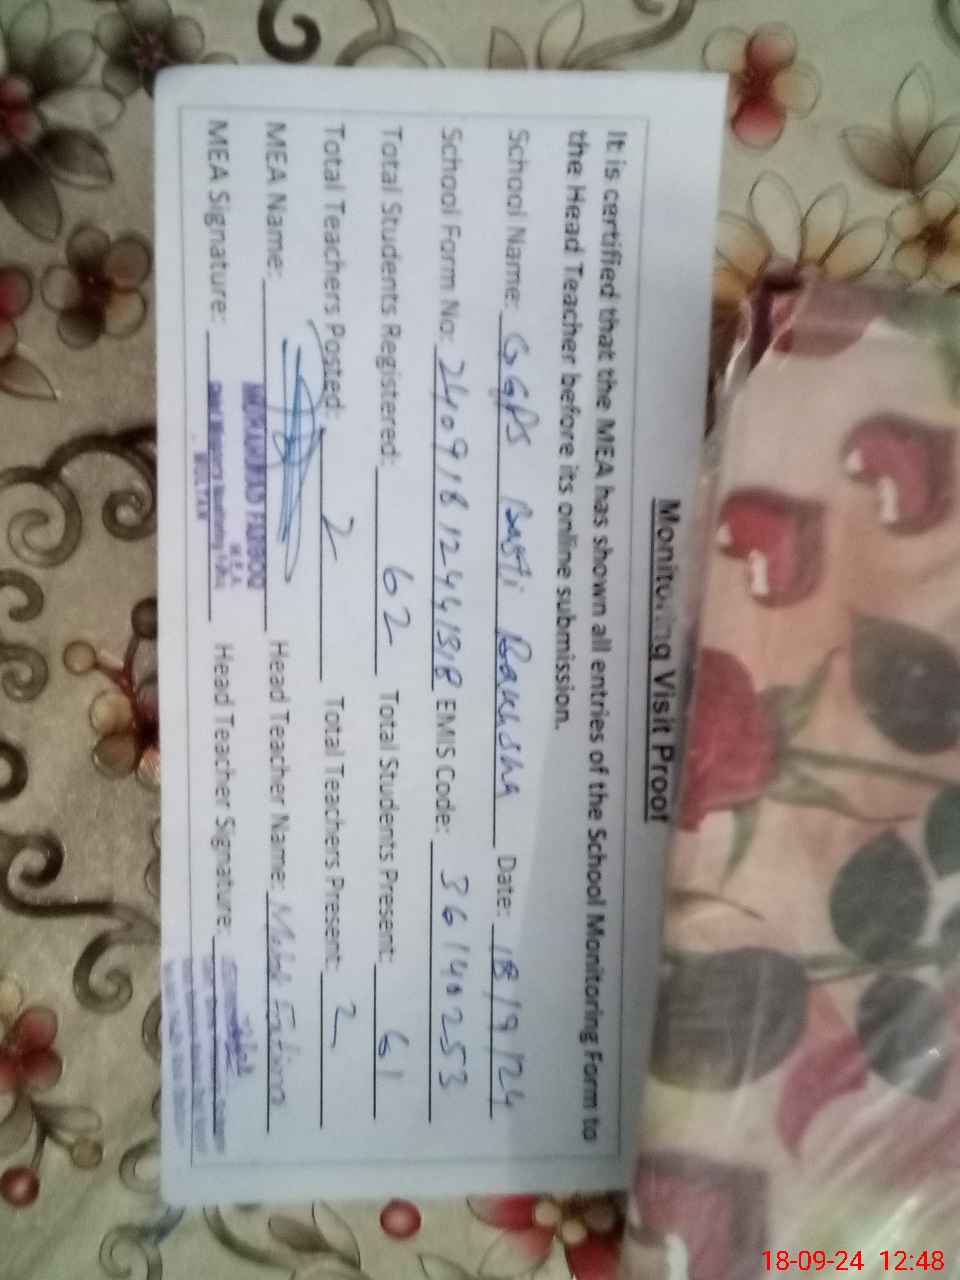 Monitoring Visit Proof
It is certified that the MEA has shown all entries of the School Monitoring Form to
the Head Teacher before its online submission.
School Name: GGPS Basti Date: 18/9/24
School Form No: EMIS Code: 36140253
Total Students Registered: 62 Total Students Present: 61
Total Teachers Posted: 2 Total Teachers Present: 2
MEA Name: MUHAMMAD FAROOQ Head Teacher Name:
MEA Signature: Head Teacher Signature:
M.E.A
MULTAN
18-09-24 12:48